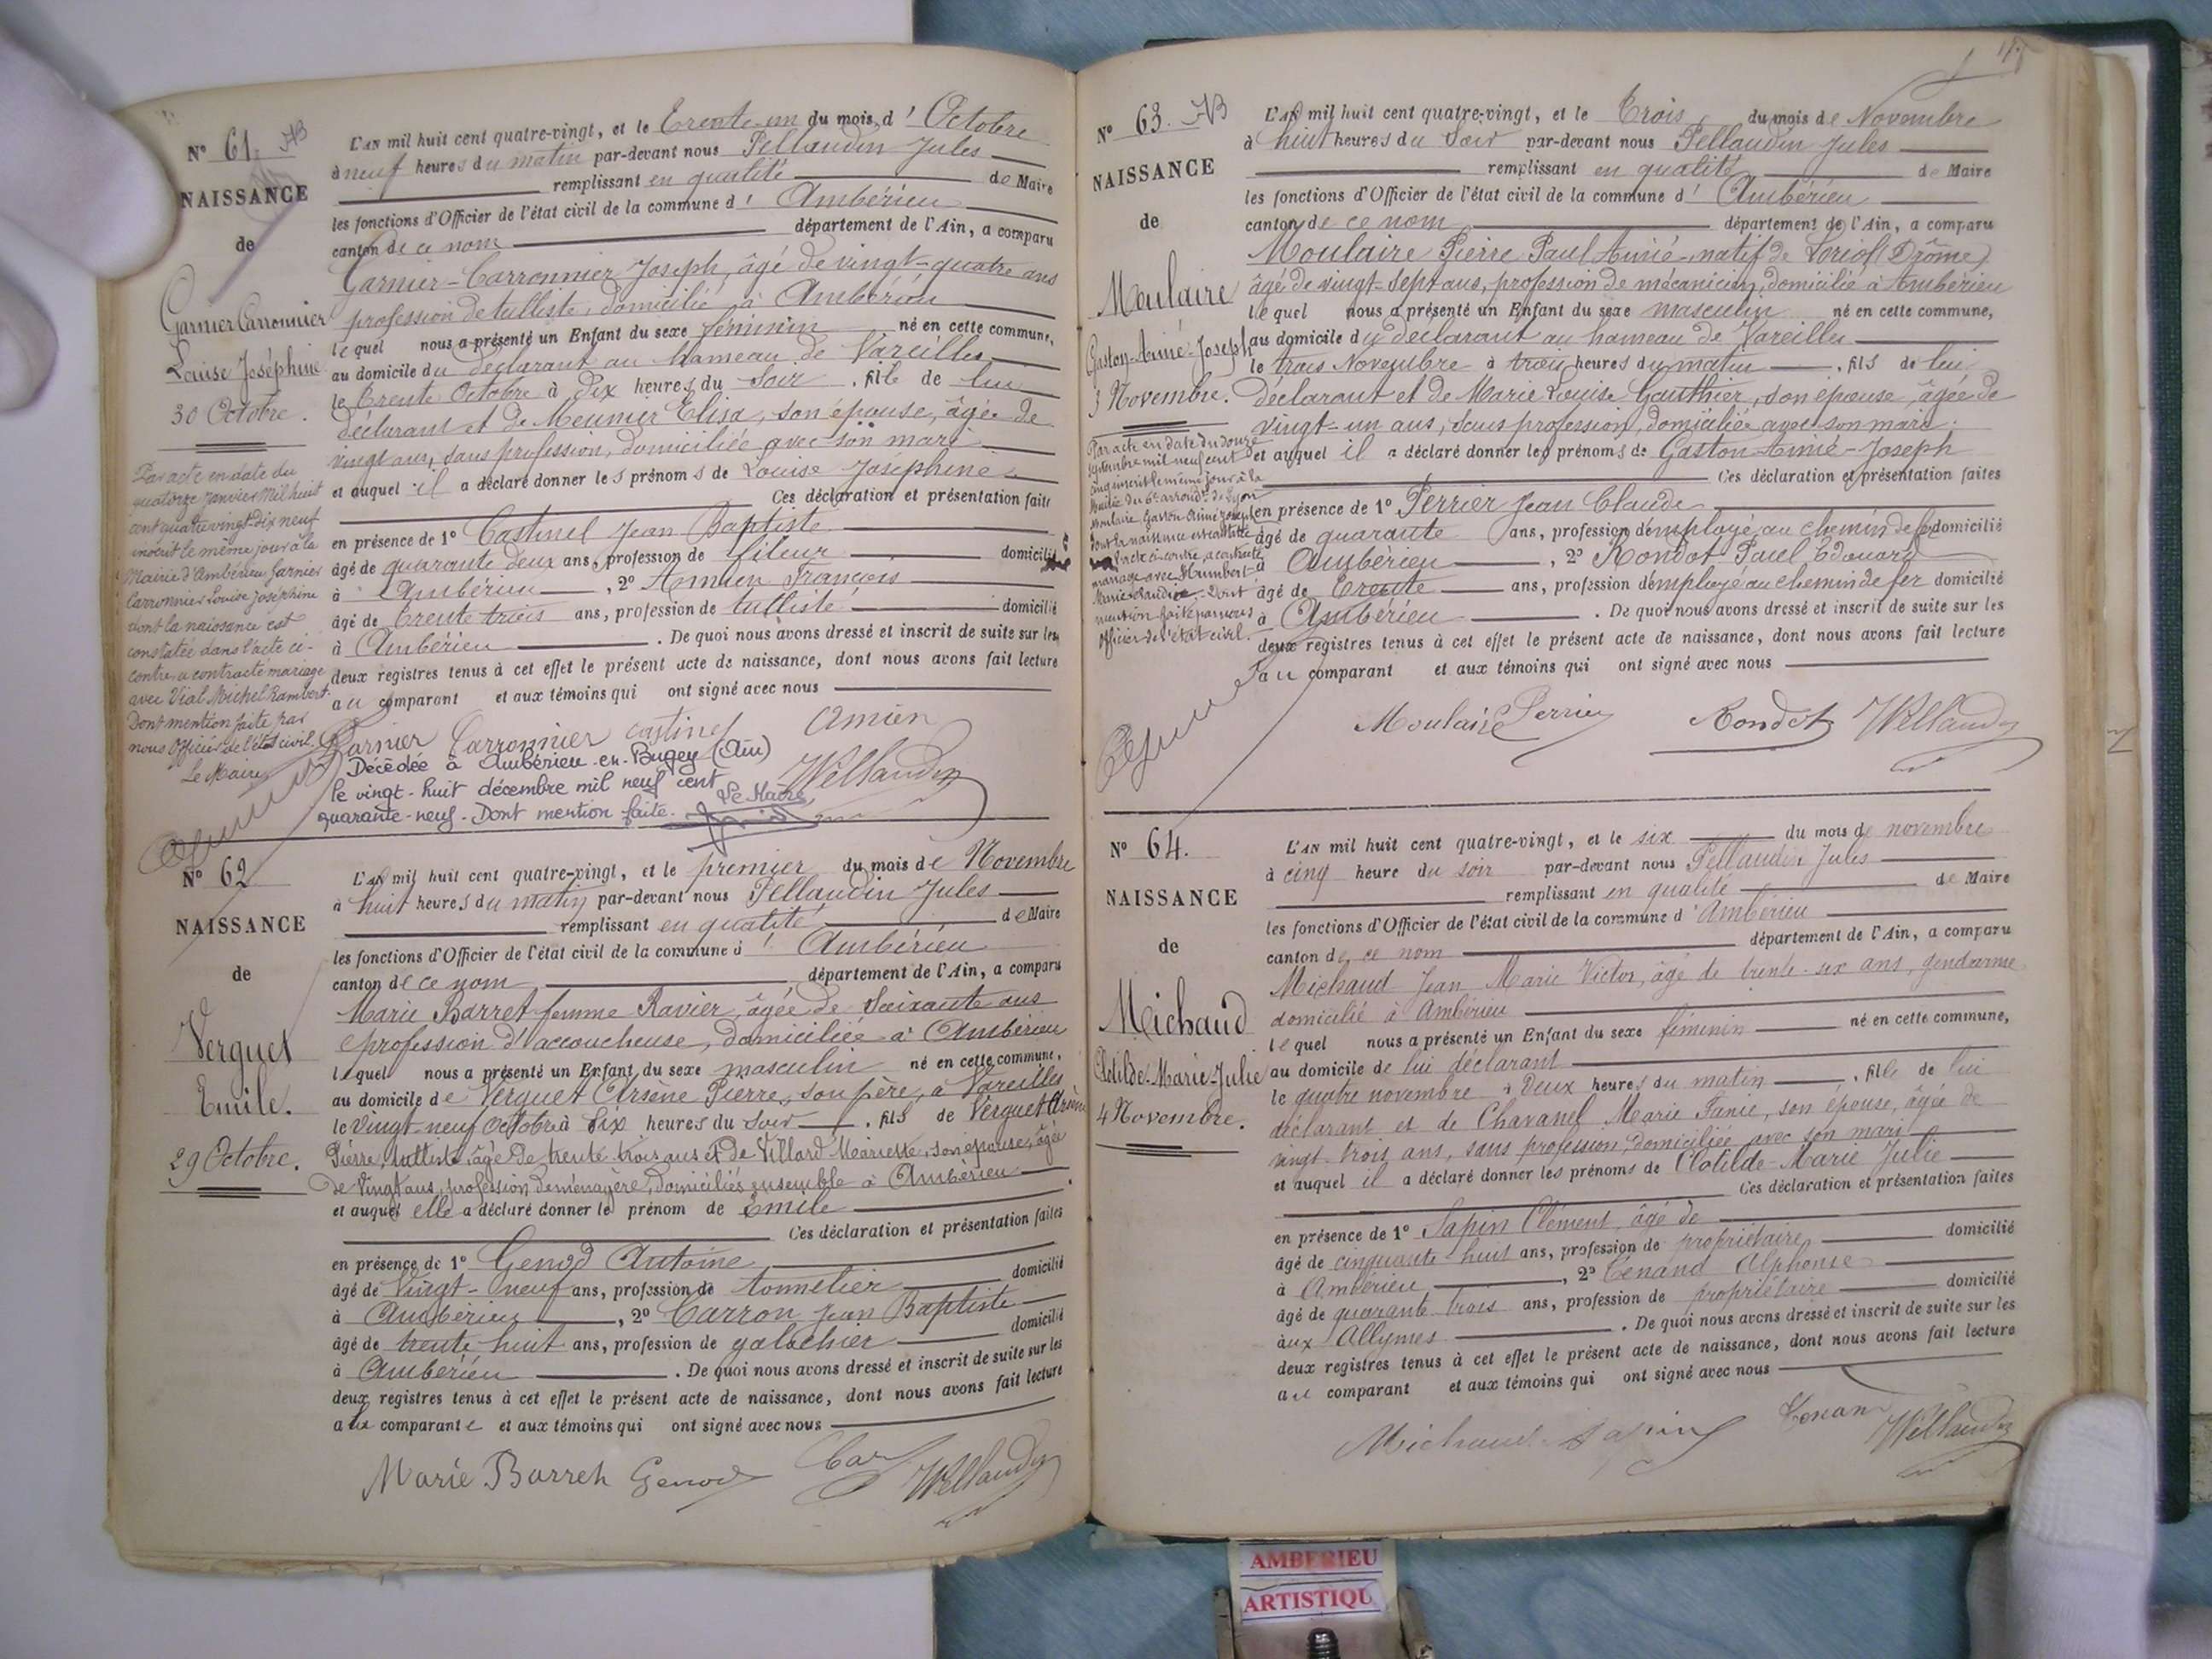 N° 61. AB
NAISSANCE
de
Garnier Carronnier
Louise Joséphine
30 Octobre.
Par acte en date du
quatorze janvier mil huit
cent quatre vingt-dix neuf
inscrit le même jour à la
Mairie d'Ambérieu Garnier
Carronnier Louise Joséphine
dont la naissance est
constatée dans l'acte ci-
contre, a contracté mariage
avec Vial Michel Rambert.
Dont mention faite par
nous Officier de l'état civil.
Le Maire
L'AN mil huit cent quatre-vingt, et le trente-un du mois d'Octobre
à neuf heures du matin par-devant nous Pellaudin Jules
remplissant en qualité de Maire
les fonctions d'Officier de l'état civil de la commune d'Ambérieu
canton de ce nom département de l'Ain, a comparu
Garnier-Carronnier Joseph, âgé de vingt-quatre ans
profession de tulliste, domicilié à Ambérieu
lequel nous a présenté un Enfant du sexe féminin né en cette commune,
au domicile du déclarant au hameau de Vareilles
le trente Octobre à dix heures du soir, fille de lui
déclarant et de Meunier Elisa, son épouse, âgée de
vingt ans, sans profession, domiciliée avec son mari
et auquel il a déclaré donner les prénoms de Louise Joséphine
Ces déclaration et présentation faite
en présence de 1° Castinel Jean Baptiste
âgé de quarante deux ans, profession de fileur domicilié
à Ambérieu, 2° Amien François
âgé de trente trois ans, profession de tulliste domicilié
à Ambérieu. De quoi nous avons dressé et inscrit de suite sur les
deux registres tenus à cet effet le présent acte de naissance, dont nous avons fait lecture
au comparant et aux témoins qui ont signé avec nous
Garnier Carronnier Castinel Amien
JPellaudin
Décédée à Ambérieu-en-Bugey (Ain)
le vingt-huit décembre mil neuf cent
quarante-neuf. Dont mention faite. Le Maire,
N° 62
NAISSANCE
de
Verguet
Emile.
29 Octobre.
L'AN mil huit cent quatre-vingt, et le premier du mois de Novembre
à huit heures du matin par-devant nous Pellaudin Jules
remplissant en qualité de Maire
les fonctions d'Officier de l'état civil de la commune d'Ambérieu
canton de ce nom, département de l'Ain, a comparu
Marie Barret femme Ravier, âgée de soixante ans
profession d'accoucheuse, domiciliée à Ambérieu
lequel nous a présenté un Enfant du sexe masculin né en cette commune,
au domicile de Verguet Arsène Pierre, son père, à Vareilles
le vingt-neuf Octobre à six heures du soir, fils de Verguet Arsène
Pierre, tulliste, âgé de trente trois ans et de Villard Mariette, son épouse, âgée
de vingt ans, profession de ménagère, domiciliés ensemble à Ambérieu
et auquel elle a déclaré donner le prénom de Emile
Ces déclaration et présentation faites
en présence de 1° Genod Antoine
âgé de vingt-neuf ans, profession de tonnelier domicilié
à Ambérieu, 2° Carron Jean Baptiste
âgé de trente huit ans, profession de galochier domicilié
à Ambérieu. De quoi nous avons dressé et inscrit de suite sur les
deux registres tenus à cet effet le présent acte de naissance, dont nous avons fait lecture
a la comparante et aux témoins qui ont signé avec nous
Marie Barret Genod Car JPellaudin
N° 63. AB
NAISSANCE
de
Moulaire
Gaston-Aimé-Joseph
3 Novembre.
Par acte en date du douze
septembre mil neuf cent
cinq inscrit le même jour à la
Mairie du 6e arrondt de Lyon
Moulaire Gaston Aimé Joseph
dont la naissance est constatée
l'acte ci-contre, a contracté
mariage avec Humbert
Marie Claudine. Dont
mention faite par nous
Officier de l'état civil.
L'AN mil huit cent quatre-vingt, et le trois du mois de Novembre
à huit heures du soir par-devant nous Pellaudin Jules
remplissant en qualité de Maire
les fonctions d'Officier de l'état civil de la commune d'Ambérieu
canton de ce nom département de l'Ain, a comparu
Moulaire Pierre Paul Aimé, natif de Loriol (Drôme)
âgé de vingt-sept ans, profession de mécanicien, domicilié à Ambérieu
lequel nous a présenté un Enfant du sexe masculin né en cette commune,
au domicile du déclarant au hameau de Vareilles
le trois Novembre à trois heures du matin, fils de lui
déclarant et de Marie Louise Gauthier, son épouse, âgée de
vingt-un ans, sans profession, domiciliée avec son mari.
et auquel il a déclaré donner les prénoms de Gaston-Aimé-Joseph
Ces déclaration et présentation faites
en présence de 1° Perrier Jean Claude
âgé de quarante ans, profession d'employé au chemin de fer domicilié
à Ambérieu, 2° Rondot Paul Edouard
âgé de trente ans, profession d'employé au chemin de fer domicilié
à Ambérieu. De quoi nous avons dressé et inscrit de suite sur les
deux registres tenus à cet effet le présent acte de naissance, dont nous avons fait lecture
au comparant et aux témoins qui ont signé avec nous
Moulaire Perrier Rondot JPellaudin
N° 64.
NAISSANCE
de
Michaud
Clotilde-Marie-Julie
4 Novembre.
L'AN mil huit cent quatre-vingt, et le six du mois de novembre
à cinq heure du soir par-devant nous Pellaudin Jules
remplissant en qualité de Maire
les fonctions d'Officier de l'état civil de la commune d'Ambérieu
canton de ce nom département de l'Ain, a comparu
Michaud Jean Marie Victor, âgé de trente-six ans, gendarme
domicilié à Ambérieu
lequel nous a présenté un Enfant du sexe féminin né en cette commune,
au domicile de lui déclarant
le quatre novembre à deux heures du matin, fille de lui
déclarant et de Chavanel Marie Fanie, son épouse, âgée de
vingt-trois ans, sans profession, domiciliée avec son mari
et auquel il a déclaré donner les prénoms de Clotilde-Marie Julie
Ces déclaration et présentation faites
en présence de 1° Sapin Clément, âgé de
âgé de cinquante-huit ans, profession de propriétaire domicilié
à Ambérieu, 2° Tenand Alphonse
âgé de quarante trois ans, profession de propriétaire domicilié
aux Allymes. De quoi nous avons dressé et inscrit de suite sur les
deux registres tenus à cet effet le présent acte de naissance, dont nous avons fait lecture
au comparant et aux témoins qui ont signé avec nous
Michaud Sapin Tenand JPellaudin
AMBERIEU
ARTISTIQU